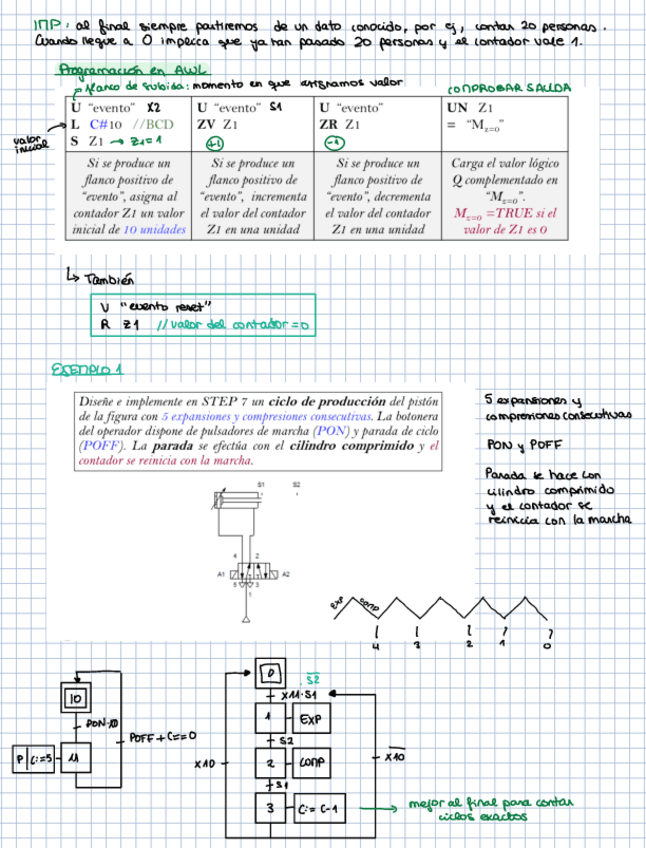 IMP: al final siempre partiremos de un dato conocido, por ej, contar 20 personas.
Cuando llegue a 0 implica que ya han pasado 20 personas y el contador vale 1.
Programación en AWL
flanco de subida: momento en que asignamos valor
COMPROBAR SALIDA
valor inicial
U "evento" X2
L C#10 //BCD
S Z1 → Z1=1
U "evento" S1
ZV Z1
+1
U "evento"
ZR Z1
-1
UN Z1
= "M_{z=0}"
Si se produce un
flanco positivo de
"evento", asigna al
contador Z1 un valor
inicial de 10 unidades
Si se produce un
flanco positivo de
"evento", incrementa
el valor del contador
Z1 en una unidad
Si se produce un
flanco positivo de
"evento", decrementa
el valor del contador
Z1 en una unidad
Carga el valor lógico
Q complementado en
"M_{z=0}".
M_{z=0} =TRUE si el
valor de Z1 es 0
↳ También
U "evento reset"
R Z1 //valor del contador =0
EJEMPLO 1
Diseñe e implemente en STEP 7 un ciclo de producción del pistón
de la figura con 5 expansiones y compresiones consecutivas. La botonera
del operador dispone de pulsadores de marcha (PON) y parada de ciclo
(POFF). La parada se efectúa con el cilindro comprimido y el
contador se reinicia con la marcha.
5 expansiones y
compresiones consecutivas
PON y POFF
Parada se hace con
cilindro comprimido
y el contador se
reinicia con la marcha
S1 S2
4 2
A1 A2
5 3
1
EXP COMP
4 3 2 1 0
10
PON·X0
P C:=5 11
POFF+C==0
0
S2
X11·S1
1 EXP
S2
2 COMP
X10
X10
S1
3 C:= C-1
mejor al final para contar
ciclos exactos